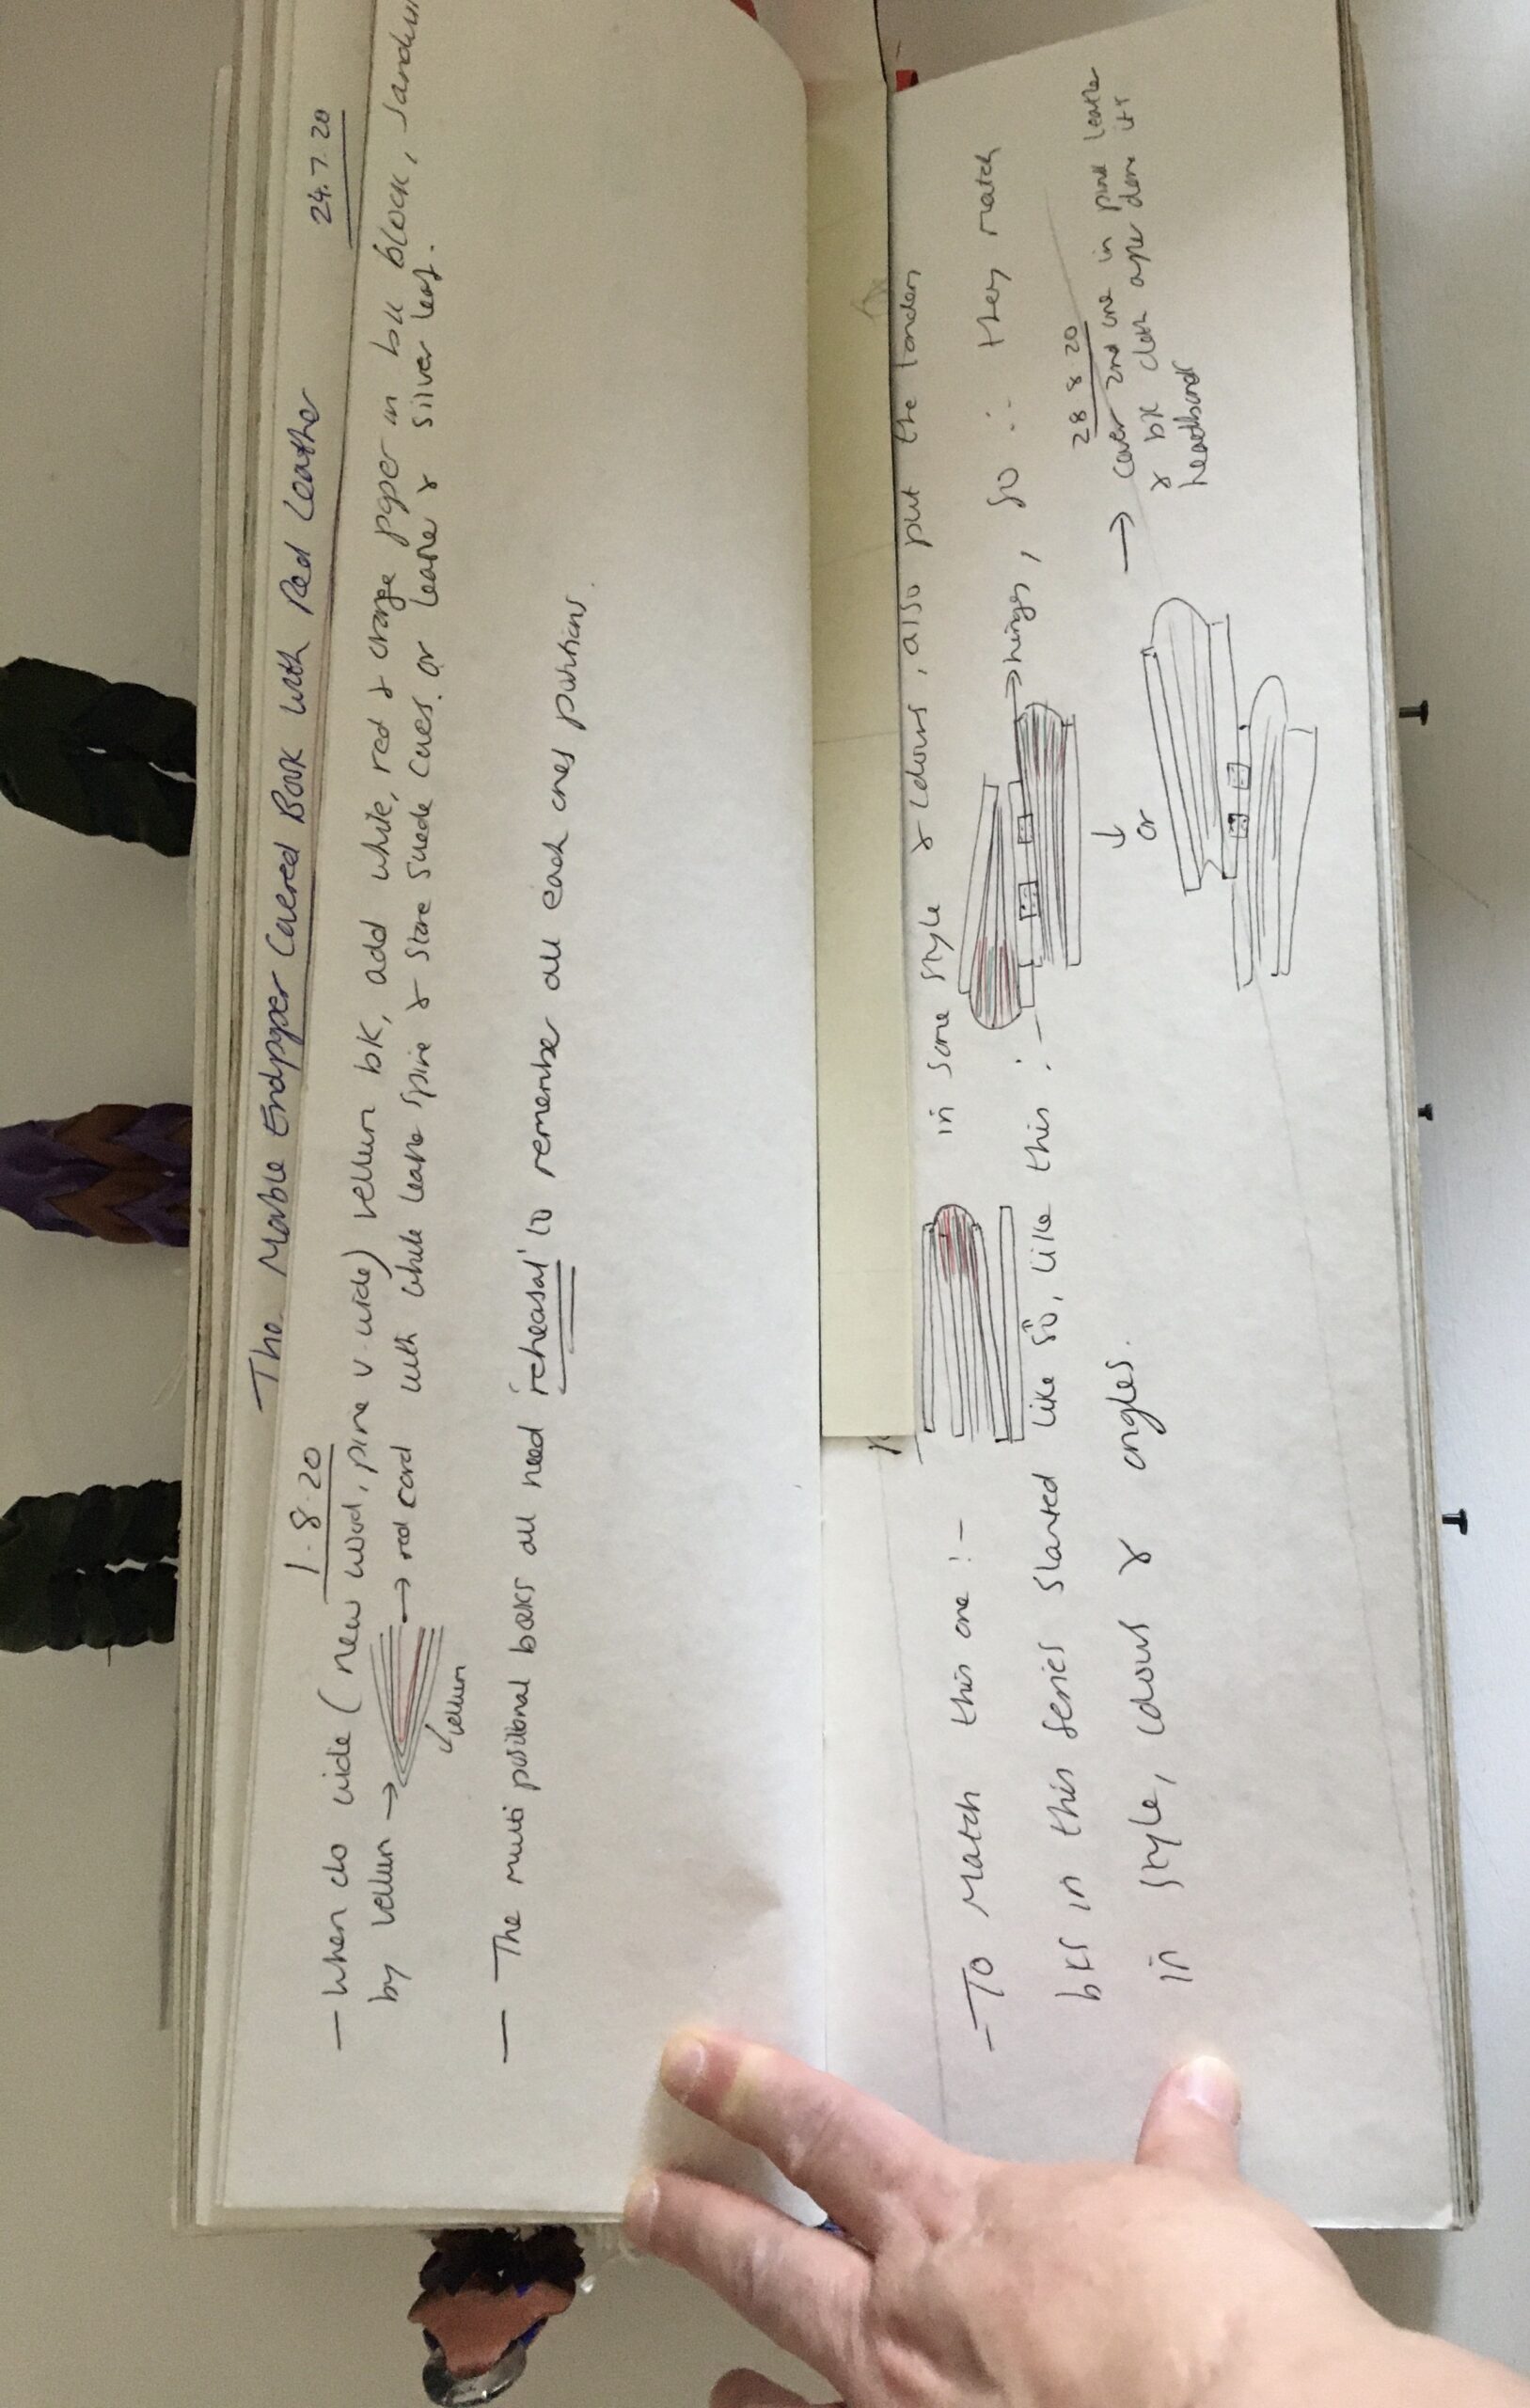 The Marble Endpaper Covered Book with Red Leather
24.7.20
1.8.20
— When do wide (new wood, pine v. wide) vellum bk, add white, red & orange paper in bk block, 
by vellum → → red card with white leather spine & stone suede cues. or leather & silver leaf.
vellum
— The multi positional books all need 'rehearsal' to remember all each ones positions.
— To match this one :- in same style & colours, also put the tandem
bks in this series slanted like so, like this :- → hinges, so ∴ they match
in style, colours & angles.
↓
or
28 8 20
→ cover 2nd one in pink leather
& bk cloth after done its
headbands